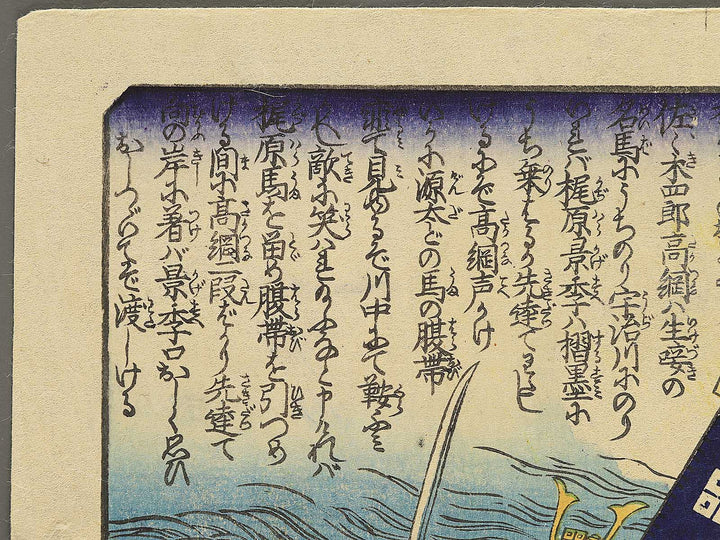 佐々木四郎高綱ハ生唼の
名馬にうちのり宇治川にのり
いれバ梶原景季ハ摺墨に
うち乗はるか先達てわたし
いるにぞ高綱声かけ
いかに源太どの馬の腹帯
延て見ゆるぞ川中にて鞍ふミ
かへし敵に笑ハれ給ふなと申けれバ
梶原馬を留め腹帯を引つめ
ける間に高綱一段ばかり先達て
向の岸に着バ景季口おしく思ひ
おしつゞいてぞ渡しける